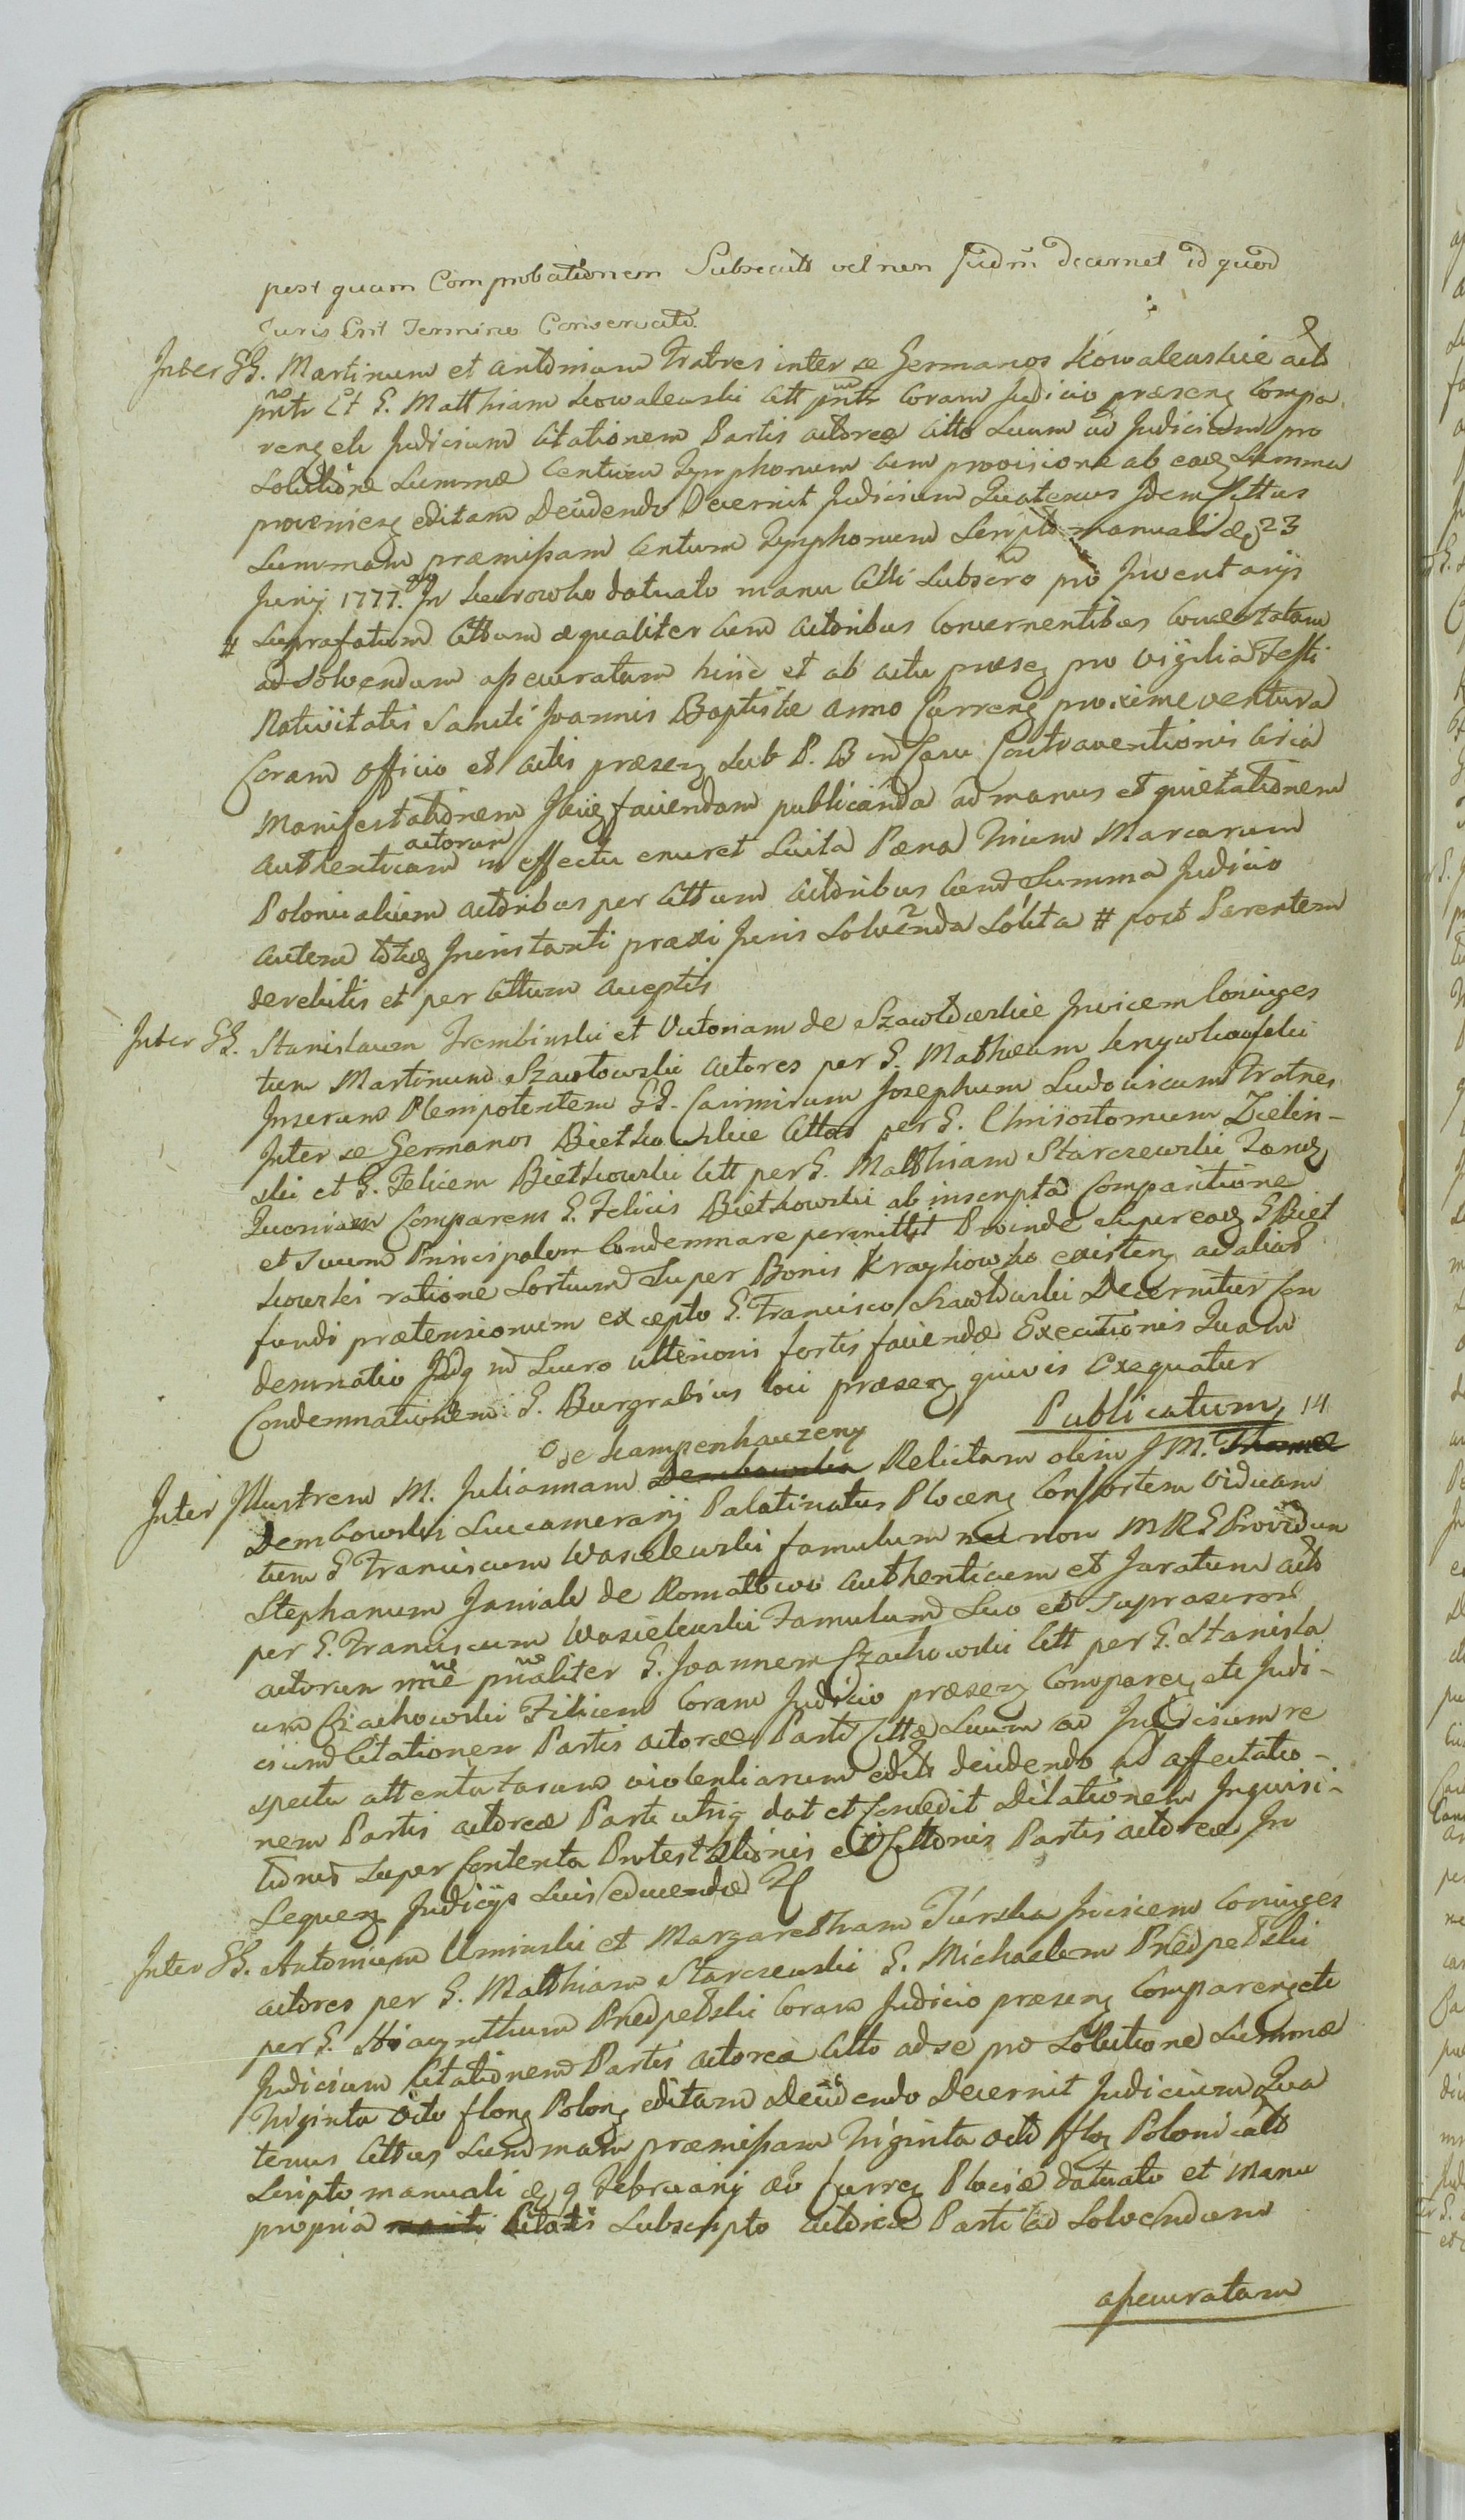 post quam Comprobationem Subsecuto vel non Judm decernet id quod
Juris Erit Termino Conservato.
Inter GG. Martinum et Antonium Fratres inter se Germanos Kowalewskie act
pnltr Et G. Matthiam Kowalewski Citt pnltr Coram Judicio præsenz Compa
renz etc Judicium Citationem Partis actorea Citto Suum ad Judicium pro
Solutione Summæ Centum Tymphonum cum provisione ab eadz Summa
provenienz editam Decidendo Decernit Judicium Quatenus Idem Cittus
Summam præmissam Centum Tymphonum Scripto manuali de 23
Junij 1777. In datuato manu Citti Subscro pro Inventarijs
# Suprafatum Cittum æqualiter cum Actoribus Concernentibus
ad Solvendum assecuratam hinc et ab actu præsenz pro Vigilia Festi
Nativitatis Sancti Joannis Baptistæ anno Currenz proxime ventura
Coram Officio et Actis præsenz Sub P. B in Casu Contraventionis Circa
Manifestationem faciendam publicanda ad manus et quietationem
authenticam actorum in effectu enumeret Luita Pæna Trium Marcarum
Polonicalium actoribus per Cittum Actoribus cum Summa Judicio
autem totiq Ininstanti præxi Juris Solvenda Soluta # post Parentem
derelictis et per Cittum acceptis
Inter GG. Stanislaum Trembinski et Victoriam de Szawłowskie Invicem Coniuges
tum Martinum Szawłowski Actores per G. Mathæum
Inserum Plenipotentem GG. Casimirum Josephum Ludovicum Fratres
Inter se Germanos Bietkowskie Cittos per G. Chrisostomum Zielin-
ski et G. Felicem Bietkowski Citt per G. Matthiam Starczewski
Quoniam Comparens G. Felicis Bietkowski ab inscripta Comparitione
et Suum Principalem Condemnare permittit Proinde Super eodz G Biet
kowski ratione Sortium Super Bonis Kraykowko existenz ac alias
fundi prætensionum excepto G. Francisco Szawłowski Decernitur Con
demnatio in Lucro ulterioris fortis faciendæ Executionis Quam
Condemnationem G. Burgrabius loci præsenz quivis Exequatur
Publicatum 14
de Kampenhauzenz
Inter Illustrem M. Juliannam Dembowska Relictam olim J M. Thomæ
Dembowski Succamerarij Palatinatus Plocenz Consortem Viduam
tum G Franciscum Wasielewski famulum nec non MRG Providum
Stephanum Janiak de Romattowo authenticum et Juratum act
per G. Franciscum Wasielewski Famulum Suo et Suprascron
actorum nnie pnaliter G. Joannem Czachowski Citt per G. Stanisla
um Czachowski Filium Coram Judicio præsenz Comparenz etc Judi-
cium Citationem Partis actoreæ Parti Cittæ Suum ad Judicium re
spectu attentatarum violentiarum edito decidendo ad affectatio-
nem Partis actoreæ Parti utriq dat et Concedit Dilationem Inquisi-
tionis Super Contenta Protestationis et Cittonis Partis actoreæ In
Sequenz Judicijs Suis educendæ
Inter GG. Antonium Uminski et Margaretham Turska Invicem Coniuges
actores per G. Matthiam Starczewski G. Michaelem Predpełski
per G. Hiacynthum Predpełski Coram Judicio præsenz Comparenz etc
Judicium Citationem Partis actorea Citto ad se pro Solutione Summæ
Triginta Octo flonz Polonz editam Decidendo Decernit Judicium Qua
tenus Cittus Summam præmissam Triginta octo floz Polonicals
Scripto manuali de 9 Februarij ao Currez Plociæ datuato et Manu
propria Citati Subscripto actoreæ Parti ad Solvendum
assecuratam